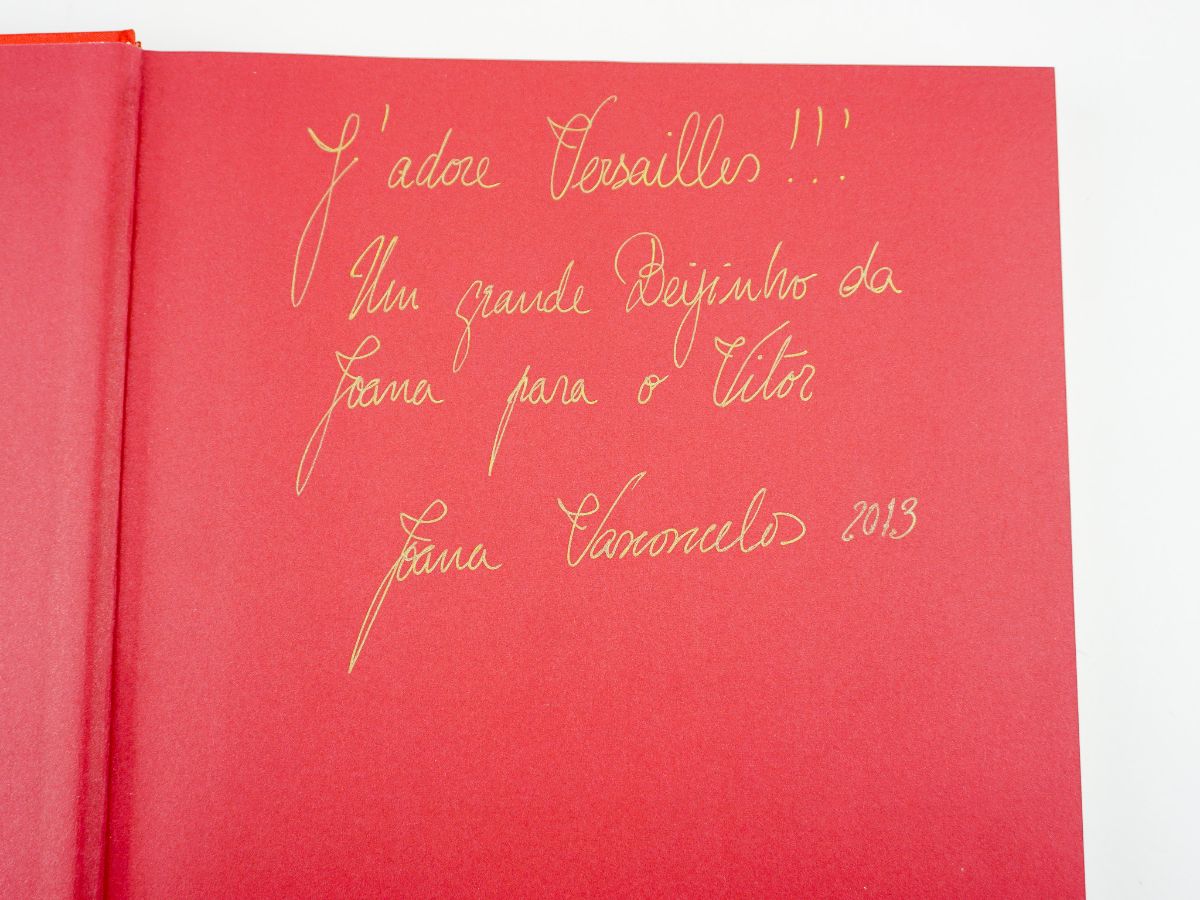 J'adore Versailles!!!
Um grande Beijinho da
Joana para o Vitor
Joana Vasconcelos 2013